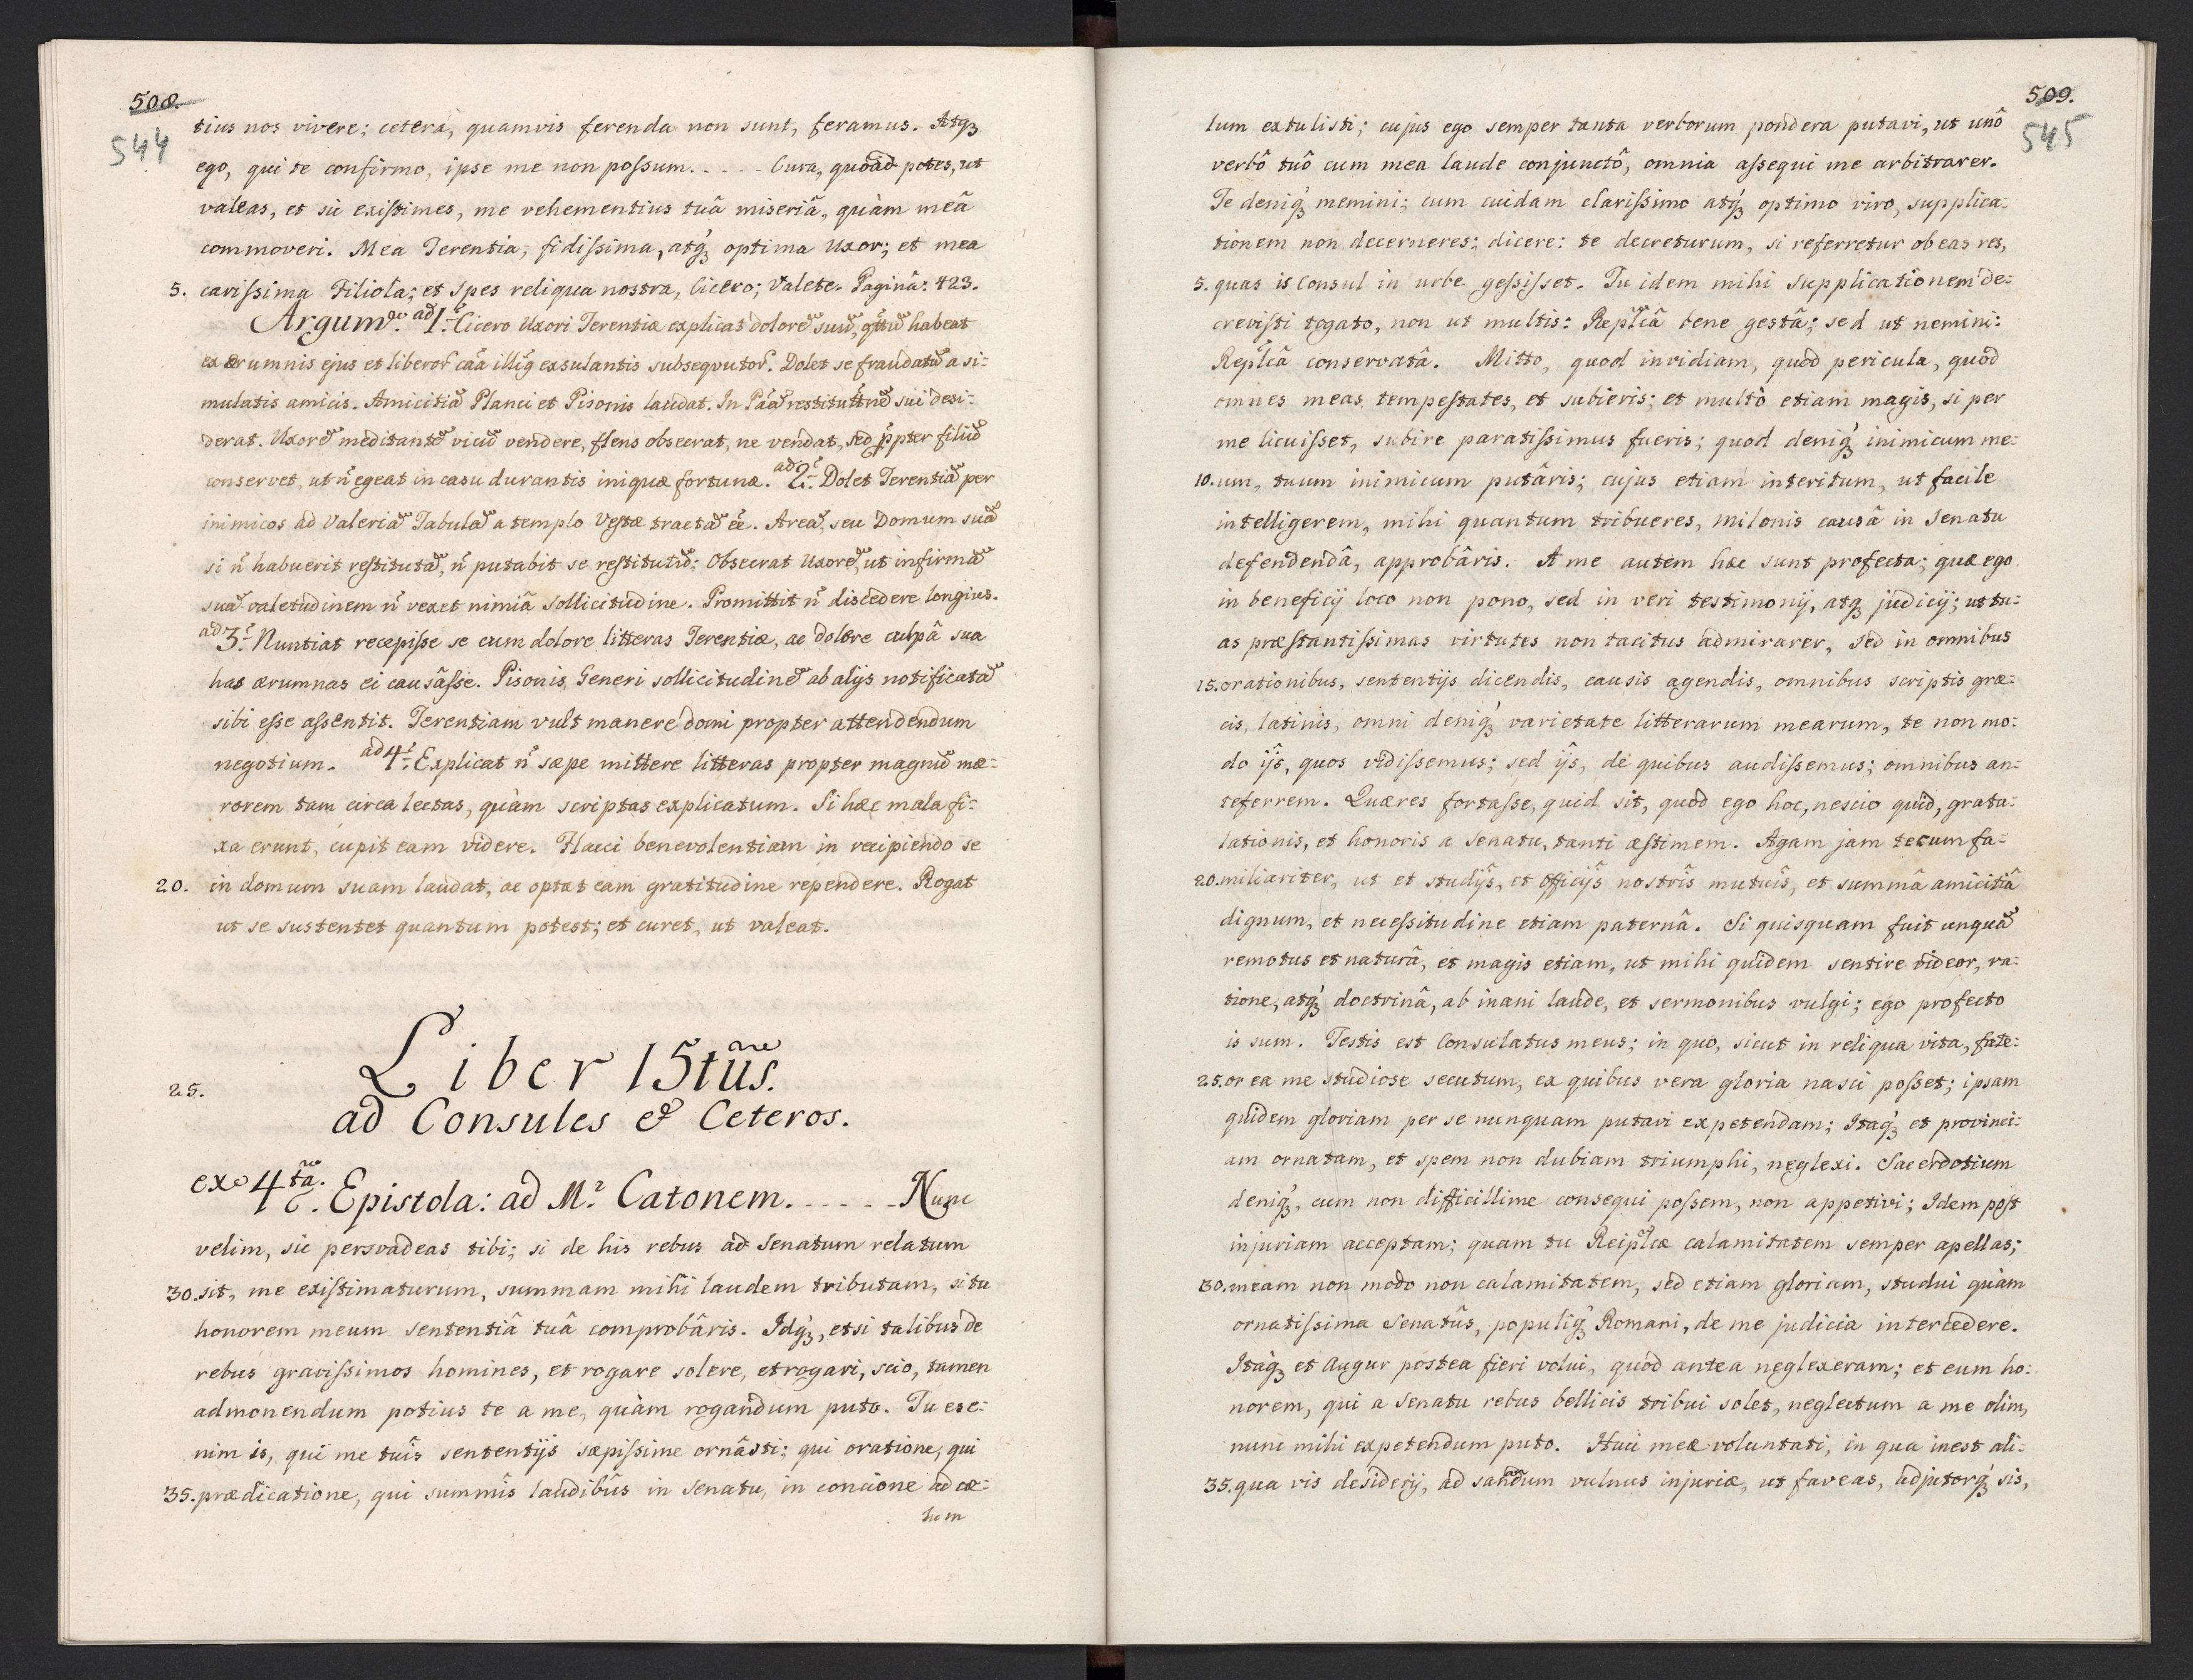 508.
544
tius nos vivere; cetera, quamvis ferenda non sunt, feramus. Atqꝫ
ego, qui te confirmo, ipse me non poſsum. . - - - Cura, quoad potes, ut
valeas, et sic exiſtimes, me vehementius tuâ miseriâ, quàm meâ
commoveri. Mea Terentia, fidiſsima, atqꝫ́ optima Uxor; et mea
5. cariſsima Filiola; et Spes reliqua nostra, Cicero; Valete. Paginâ: 423.
ad 1. Cicero Uxori Terentiæ explicat dolorē suū, habeat
ex ærumnis ejus et exsulantis Dolet se fraudatū a si-
mulatis amicis. Amicitiā Planci et Pisonis laudat. In sui desi-
derat. Uxorē meditantē vicū vendere, flens obsecrat, ne vendat, sed filiū
conservet, ut n̄ egeat in casu durantis iniquæ fortunæ. ad 2. Dolet Terentiā per
inimicos ad Valeriā Tabulā a templo Veſtæ tractā ēē. Areā, seu Domum suā
si n̄ habuerit reſtitutā, n̄ putabit se reſtitutū; Obsecrat Uxorē, ut infirmā
suā valetudinem n̄ vexet nimiâ sollicitudine. Promittit n̄ discedere longius.
ad 3. Nuntiat recepiſse se cum dolore litteras Terentiæ, ac dolere culpâ sua
has ærumnas ei causâſse. Pisonis, Generi sollicitudinē ab alijs notificatā
sibi eſse aſsentit. Terentiam vult manere domi propter attendendum
negotium. ad 4. Explicat n̄ sæpe mittere litteras propter magnū mæ-
rorem tam circa lectas, quàm scriptas explicatum. Si hæc mala fi-
xa erunt, cupit eam videre. Flacci benevolentiam in recipiendo se
20. in domum suam laudat, ac optat eam gratitudine rependere. Rogat
ut se sustentet quantum potest; et curet, ut valeat.
Liber 15tūs.
25.
ad Consules & Ceteros.
ex 4tâ. Epistola: ad M. Catonem. - - - - - Nunc
velim, sic persvadeas tibi; si de his rebus ad Senatum relatum
30. sit, me exiſtimaturum, summam mihi laudem tributam, si tu
honorem meum sententiâ tuâ comprobâris. Idqꝫ́, etsi talibus de
rebus graviſsimos homines, et rogare solere, et rogari, scio, tamen
admonendum potius te a me, quàm rogandum puto. Tu es e-
nim is, qui me tuîs sententijs sæpiſsime ornâsti; qui oratione, qui
35. prædicatione, qui summîs laudibûs in Senatu, in concione ad cæ-
lum
509.
545
lum extulisti; cujus ego semper tanta verborum pondera putavi, ut unô
verbô tuô cum mea laude conjunctô, omnia aſsequi me arbitrarer.
Te deniqꝫ́ memini; cum cuidam clariſsimo atqꝫ́ optimo viro, supplica-
tionem non decerneres; dicere: te decreturum, si referretur ob eas res,
5. quas is Consul in urbe geſsiſset. Tu idem mihi supplicationem de-
creviſti togato, non ut multis: Repl̄câ bene gestâ; sed ut nemini:
Repl̄câ conservatâ. Mitto, quod invidiam, quòd pericula, quòd
omnes meas tempeſtates, et subieris; et multò etiam magis, si per
me licuiſset, subire paratiſsimus fueris; quod deniqꝫ́ inimicum me-
10. um, tuum inimicum putâris; cujus etiam interitum, ut facile
intelligerem, mihi quantum tribueres, Milonis causâ in Senatu
defendendâ, approbâris. A me autem hæc sunt profecta; quæ ego
in beneficij loco non pono, sed in veri testimonij, atqꝫ judicij; ut tu-
as præſtantiſsimas virtutes non tacitus admirarer, sed in omnibus
15. orationibus, sententijs dicendis, causis agendis, omnibus scriptis græ-
cis, latinis, omni deniqꝫ́ varietate litterarum mearum, te non mo-
do ijs, quos vidiſsemus; sed ijs, de quibus audiſsemus; omnibus an-
teferrem. Quæres fortaſse, quid sit, quòd ego hoc, nescio quid, gratu-
lationis, et honoris a Senatu, tanti æſtimem. Agam jam tecum fa-
20. miliariter, ut et studijs, et officijs nostrîs mutuîs, et summâ amicitiâ
dignum, et neceſsitudine etiam paternâ. Si quisquam fuit unquā
remotus et naturâ, et magis etiam, ut mihi quidem sentire videor, ra-
tione, atqꝫ́ doctrinâ, ab inani laude, et sermonibus vulgi; ego profecto
is sum. Testis est Consulatus meus; in quo, sicut in reliqua vita, fate-
25. or ea me studiose secutum, ex quibus vera gloria nasci poſset; ipsam
quidem gloriam per se nunquam putavi expetendam; Itaqꝫ́ et provinci-
am ornatam, et spem non dubiam triumphi, neglexi. Sacerdotium
deniqꝫ́, cum non difficillime consequi poſsem, non appetivi; Idem poſt
injuriam acceptam; quam tu Reipl̄cæ calamitatem semper apellas;
30. meam non modo non calamitatem, sed etiam gloriam, studui quàm
ornatiſsima Senatûs, populiqꝫ́ Romani, de me judicia intercedere.
Itaqꝫ́ et Augur postea fieri volui, quòd antea neglexeram; et eum ho-
norem, qui a Senatu rebus bellicis tribui solet, neglectum a me olim,
nunc mihi expetendum puto. Huic meæ voluntati, in qua inest ali-
35. qua vis desiderij, ad sanandum vulnus injuriæ, ut faveas, adjutorqꝫ́ sis,